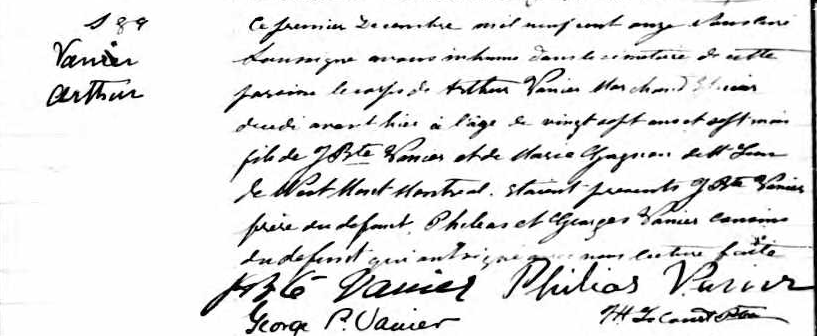 S 88
Vanier
Arthur
Ce premier Decembre mil neuf cent onze nous curé
soussigné avons inhumé dans le cimetiere de cette
paroisse le corps de Arthur Vanier Marchand Epicier
decedé avant hier à l'âge de vingt sept ans et sept mois
fils de J Bte Vanier et de Marie Gagnon de St
de West Mont Montreal. Etaient presents J Bte Vanier
frère du defunt, Phileas et Georges Vanier cousins
du defunt qui ont signé avec nous lecture faite
J Bte Vanier Philias Vanier
George P. Vanier